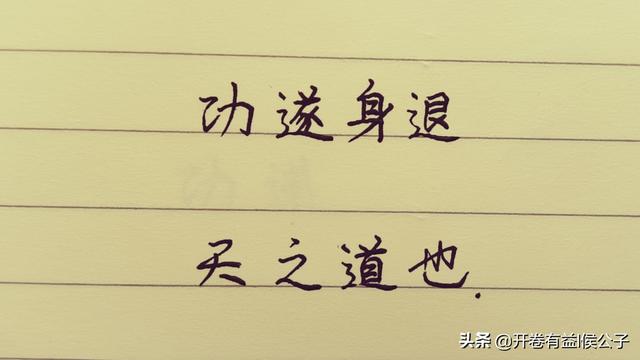 功遂身退
天之道也.
头条 @开卷有益|侯公子